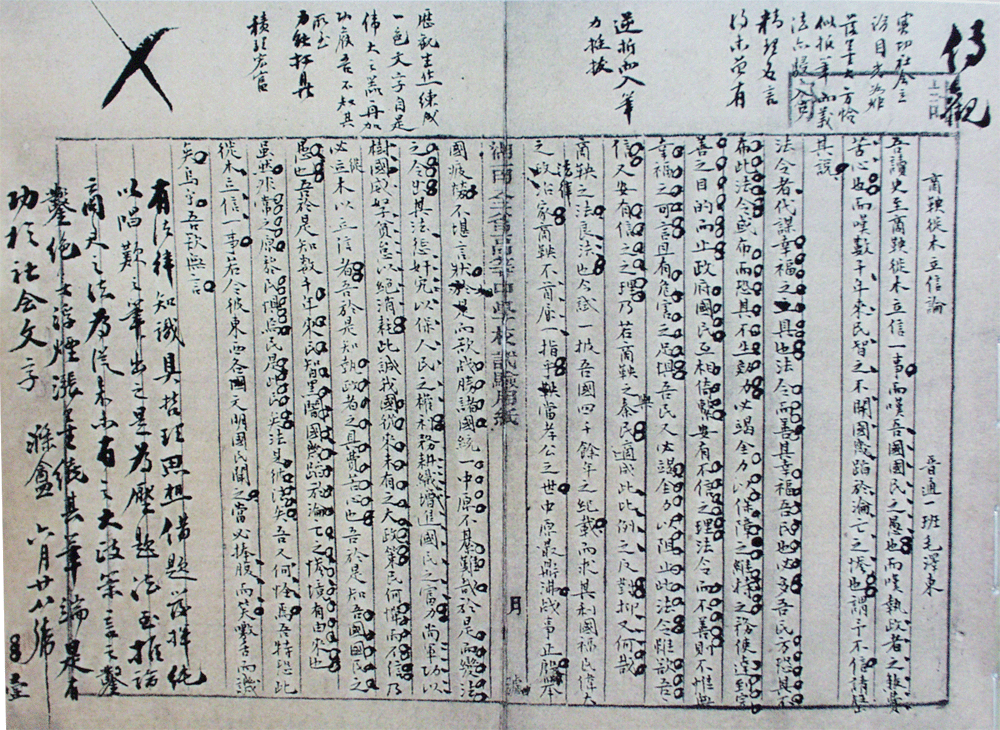 傳觀
實切社會立
論目光如炬
落墨大方恰
似報筆而義
法亦駸駸入古
精理名言
得未曾有
逆折而入筆
力挺拔
歷觀生作練成
一色文字自是
偉大之器再加
功候吾不知其
所至
力能扛鼎
積理宏富
商鞅徙木立信論 普通一班毛澤東
吾讀史至商鞅徙木立信一事而嘆吾國國民之愚也而嘆執政者之煞費
苦心也而嘆數千年來民智之不開國幾蹈於淪亡之慘也謂予不信請罄
其說
法令者代謀幸福之具也法令而善其幸福吾民也必多吾民方恐其不
布此法令或布而恐其不生效力必竭全力以保障之維持之務使達到完
善之目的而止政府國民互相倚繫安有不信之理法令而不善則不惟無
幸福之可言且有危害之足懼吾民又必竭全力以阻止此法令雖欲吾
信又安有信之之理乃若商鞅之與秦民適成此比例之反對抑又何哉
商鞅之法良法也今試一披吾國四千餘年之紀載而求其利國福民偉大
之政治家商鞅不首屈一指乎鞅當孝公之世中原鼎沸戰事正殷舉
湖南全省高等中學校試驗用紙
月
國疲勞不堪言狀於是而欲戰勝諸國統一中原不綦難哉於是而變法
之令出其法懲奸宄以保人民之權利務耕織以增進國民之富力尚軍功以
樹國威孥貧怠以絕消耗此誠我國從來未有之大政策民何憚而不信乃
必徙木以立信者吾於是知執政者之具費苦心也吾於是知吾國國民之
愚也吾於是知數千年來民智黑闇國幾蹈於淪亡之慘境有由來也
雖然非常之原黎民懼焉民是此民矣法是彼法矣吾又何怪焉吾特恐此
徙木立信一事若令彼東西各國文明國民聞之當必捧腹而笑噭舌而譏
矣烏乎吾欲無言
有法律知識具哲理思想借題發揮純
以唱歎之筆出之是為壓題法至推論
商君之法為從來未有之大政策言之鑿
鑿絕無浮煙漲墨繞其筆端是有
功於社會文字 滌盦 六月廿八號